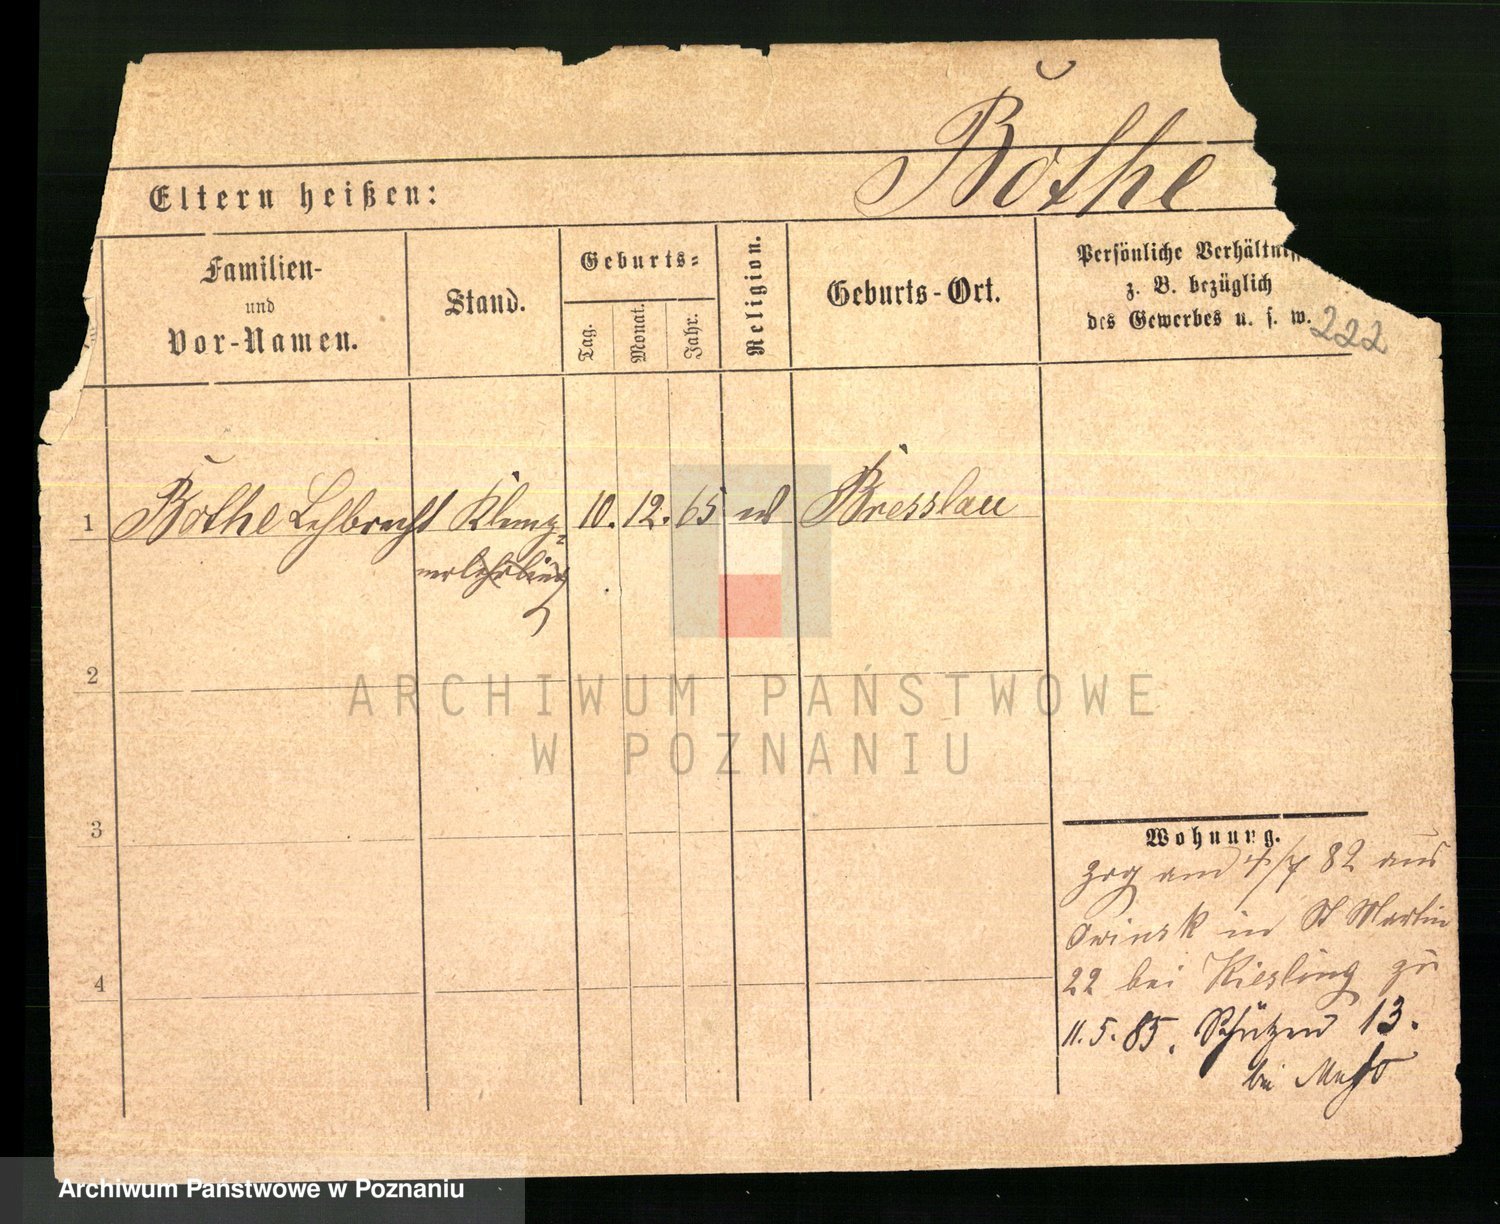 Bŏthe
Eltern heißen:
Familien-
und
Vor-Namen.
Stand.
Geburts-
Tag.
Monat.
Jahr.
Religion.
Geburts-Ort.
Persönliche Verhältniss
z. B. bezüglich
des Gewerbes u. s. w.
222
1 Bothe Lehbrecht Klemp- 10. 12. 65 Bresslau
nerlehrling
2
3
4
Wohnung.
zog am 82 aus
Owinsk in St Martin
22 bei Kiesling zu
11. 5. 85. Schützen 13.
bei
ARCHIWUM PAŃSTWOWE
W POZNANIU
Archiwum Państwowe w Poznaniu